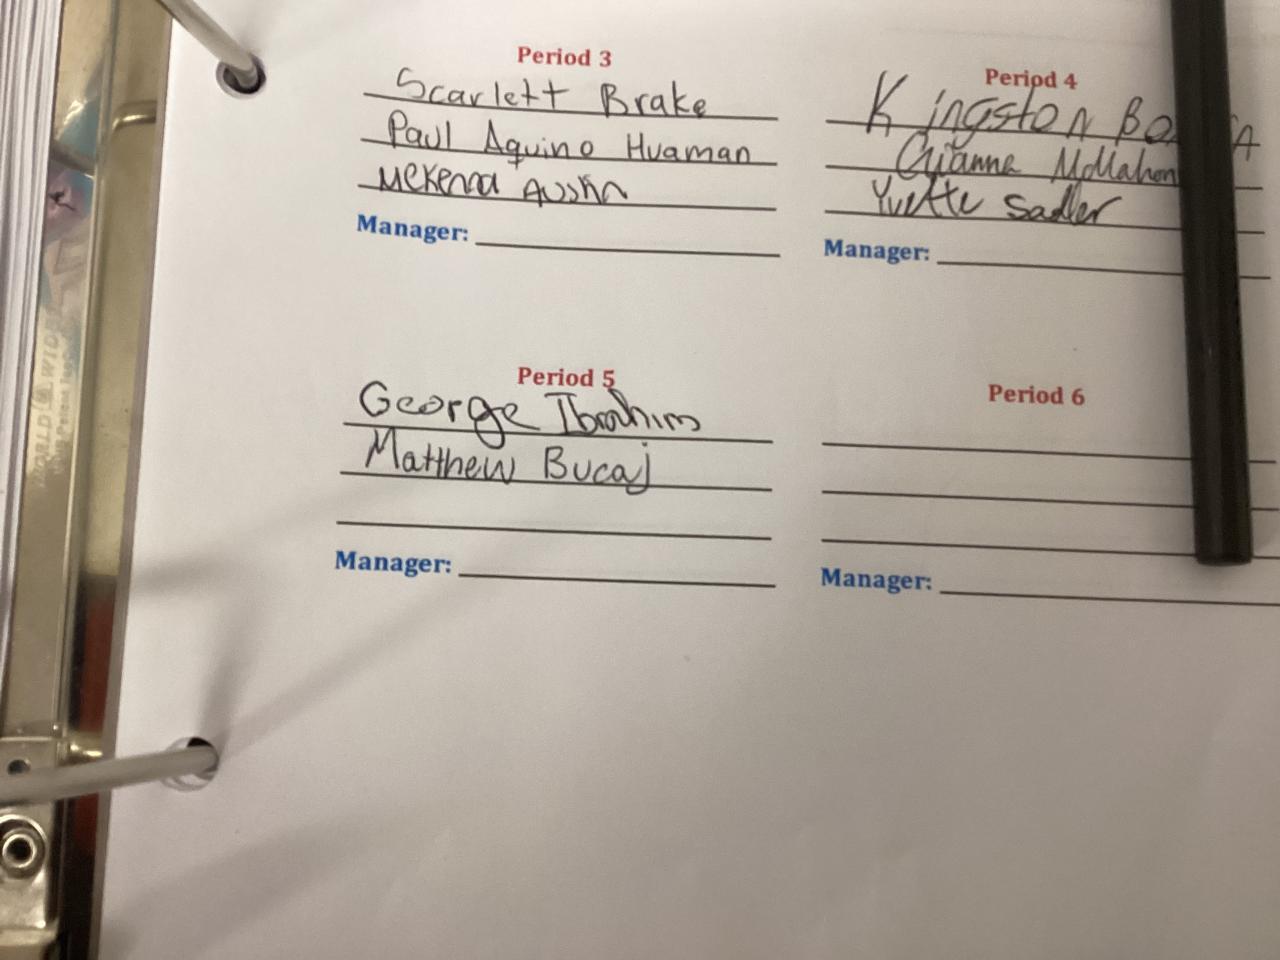 Period 3
Scarlett Brake
Paul Aquino Huaman
Mckenna Austin
Manager:
Period 4
Kingston
Gianna McMahon
Yvette Sadler
Manager:
Period 5
George Ibrahim
Matthew Bucaj
Manager:
Period 6
Manager: